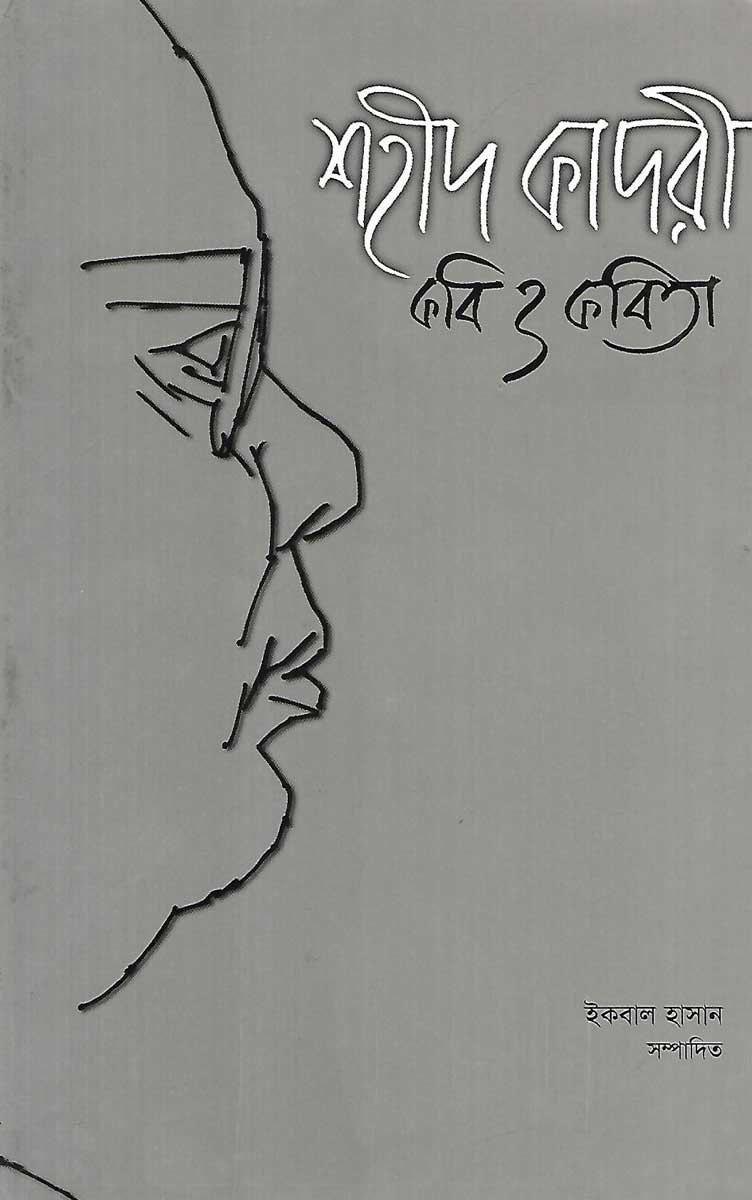 শহীদ কাদরী
কবি ও কবিতা
ইকবাল হাসান
সম্পাদিত